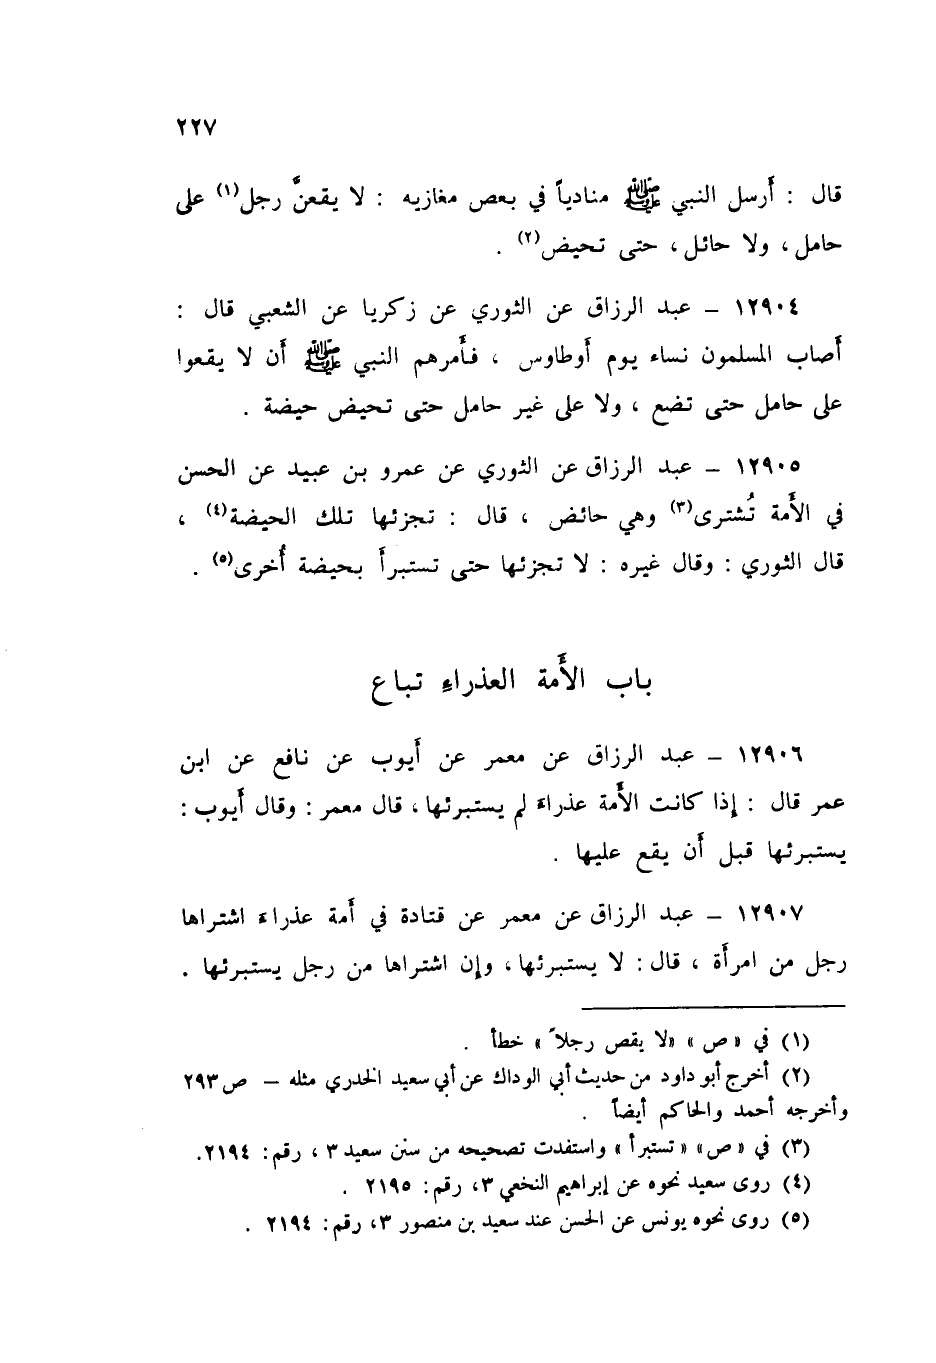 ٢٢٧
قال : أَرسل النبي ﷺ منادياً في بعص مغازيه : لا يقعنَّ رجل(١) على
حامل ، ولا حائل ، حتى تحيض(٢) .
١٢٩٠٤ – عبد الرزاق عن الثوري عن زكريا عن الشعبي قال :
أَصاب المسلمون نساء يوم أَوطاوس ، فأَمرهم النبي ﷺ أَن لا يقعوا
على حامل حتى تضع ، ولا على غير حامل حتى تحيض حيضة .
١٢٩٠٥ – عبد الرزاق عن الثوري عن عمرو بن عبيد عن الحسن
في الأَمة تُشترى(٣) وهي حائض ، قال : تجزئها تلك الحيضة(٤) ،
قال الثوري : وقال غيره : لا تجزئها حتى تستبرأَ بحيضة أُخرى(٥) .
باب الأَمة العذراءِ تباع
١٢٩٠٦ – عبد الرزاق عن معمر عن أَيوب عن نافع عن ابن
عمر قال : إذا كانت الأَمة عذراءَ لم يستبرئها ، قال معمر : وقال أَيوب :
يستبرئها قبل أَن يقع عليها .
١٢٩٠٧ – عبد الرزاق عن معمر عن قتادة في أَمة عذراءَ اشتراها
رجل من امرأَة ، قال : لا يستبرئها ، وإن اشتراها من رجل يستبرئها .
(١) في « ص » «لا يقص رجلاً » خطأ .
(٢) أخرج أبو داود من حديث أبي الوداك عن أبي سعيد الخدري مثله – ص ٢٩٣
وأخرجه أحمد والحاكم أيضاً .
(٣) في « ص » « تستبرأ » واستفدت تصحيحه من سنن سعيد ٣ ، رقم : ٢١٩٤.
(٤) روى سعيد نحوه عن إبراهيم النخعي ٣، رقم : ٢١٩٥ .
(٥) روى نحوه يونس عن الحسن عند سعيد بن منصور ٣، رقم : ٢١٩٤ .